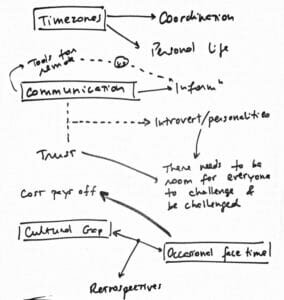 Timezones
Coordination
Personal Life
Tools for
remote
vs
Communication
Inform"
Introvert/personalities
Trust
There needs to be
room for everyone
to challenge &
be challenged
Cost pays off
Cultural Gap
Occasional facetime
Retrospectives